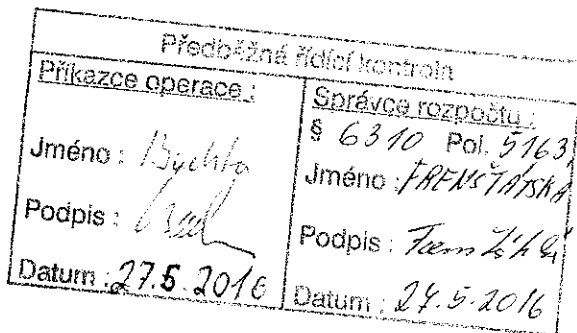 Předběžná řídící kontrola
Příkazce operace :
Jméno :
Podpis :
Datum : 27.5.2016
Správce rozpočtu :
§ 6310 Pol. 5163
Jméno : FRENŠTÁTSKÁ
Podpis :
Datum : 27.5.2016